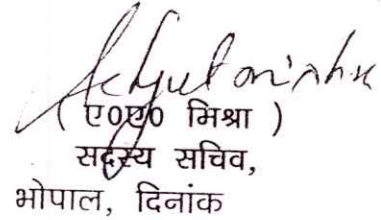 ( ए0ए0 मिश्रा )
सदस्य सचिव,
भोपाल, दिनांक